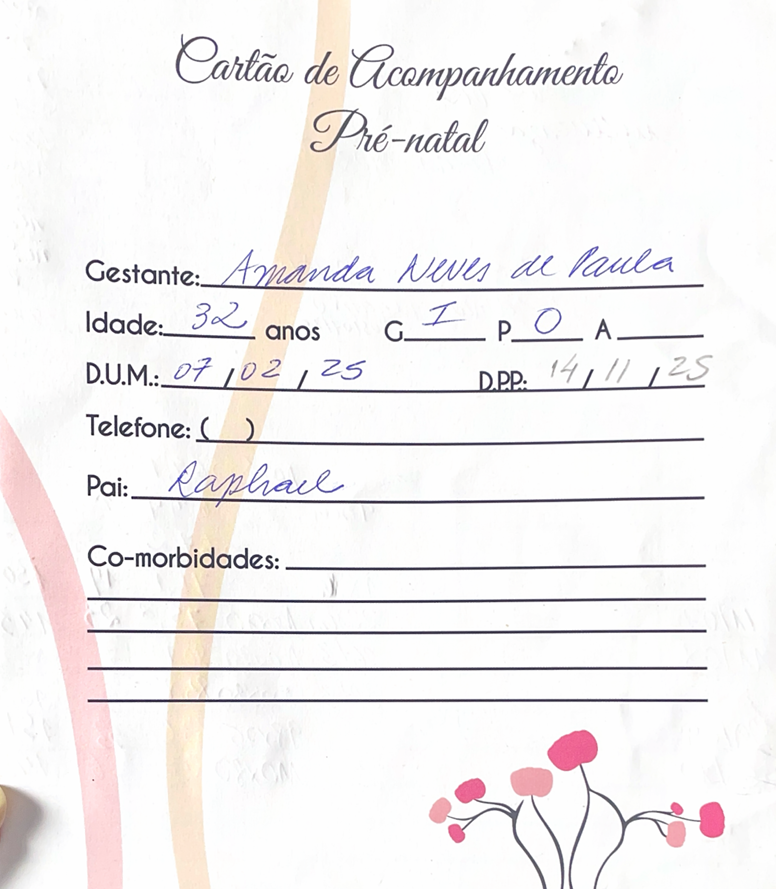 Cartão de Acompanhamento
Pré-natal
Gestante: Amanda Neves de Paula
Idade: 32 anos G I P 0 A
D.U.M.: 07 / 02 / 25 D.P.P.: 14 / 11 / 25
Telefone: ( )
Pai: Raphael
Co-morbidades: